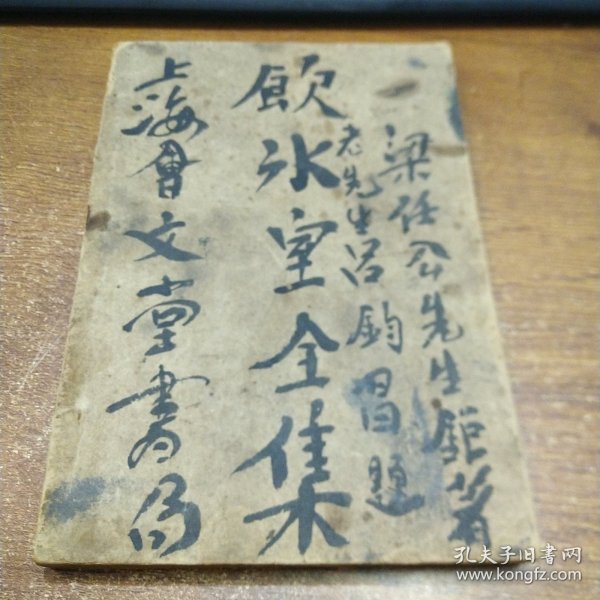 梁任公先生鉅著
老先生呂鈞昌題
飲冰室全集
上海會文堂書局
孔夫子旧书网
www.kongfz.com